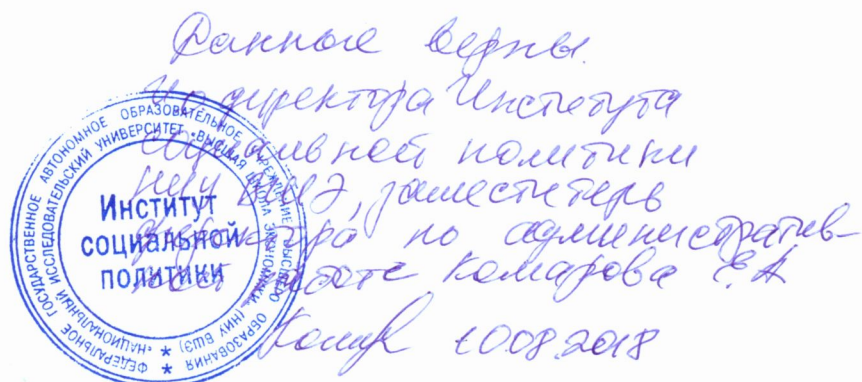 Данные верны.
Ио директора Института
социальной политики
НИУ ВШЭ, заместитель
директора по административ-
ной работе Комарова Е.А
10.08.2018
ФЕДЕРАЛЬНОЕ ГОСУДАРСТВЕННОЕ АВТОНОМНОЕ ОБРАЗОВАТЕЛЬНОЕ УЧРЕЖДЕНИЕ ВЫСШЕГО ОБРАЗОВАНИЯ
«НАЦИОНАЛЬНЫЙ ИССЛЕДОВАТЕЛЬСКИЙ УНИВЕРСИТЕТ «ВЫСШАЯ ШКОЛА ЭКОНОМИКИ» (НИУ ВШЭ)
Институт
социальной
политики